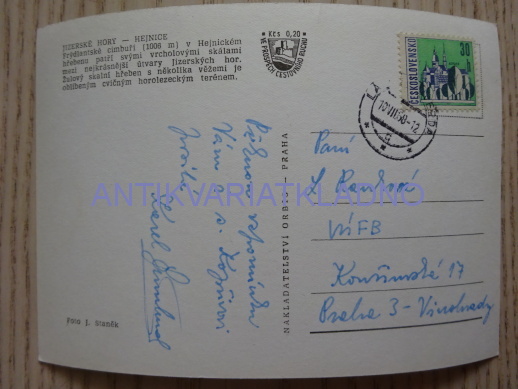 JIZERSKÉ HORY — HEJNICE
Frýdlantské cimbuří (1006 m) v Hejnickém
hřebenu patří svými vrcholovými skálami
mezi nejkrásnější útvary Jizerských hor.
Žulový skalní hřeben s několika věžemi je
oblíbeným cvičným horolezeckým terénem.
Kčs 0,20
VE PROSPĚCH CESTOVNÍHO RUCHU
30
ČESKOSLOVENSKO
Pěknou vzpomínku
Vám a s.
Karel
NAKLADATELSTVÍ ORBIS — PRAHA
Paní
L
VÚFB
Kouřimská 17
Praha 3 - Vinohrady
Foto J. Staněk
ANTIKVARIATKLADNO